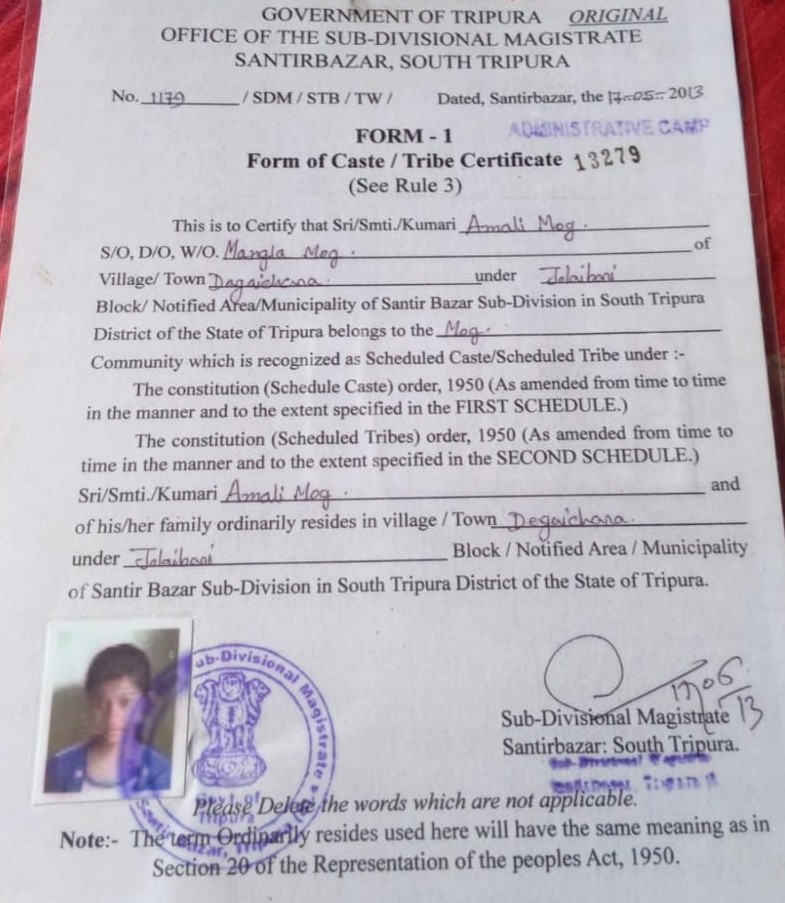 GOVERNMENT OF TRIPURA ORIGINAL
OFFICE OF THE SUB-DIVISIONAL MAGISTRATE
SANTIRBAZAR, SOUTH TRIPURA
No. 1179 / SDM / STB / TW / Dated, Santirbazar, the 17-05- 2013
ADMINISTRATIVE CAMP
FORM - 1
Form of Caste / Tribe Certificate 13279
(See Rule 3)
This is to Certify that Sri/Smti./Kumari Amali Mog.
S/O, D/O, W/O. Mangla Mog. of
Village/ Town Degaichana. under Jolaibari
Block/ Notified Area/Municipality of Santir Bazar Sub-Division in South Tripura
District of the State of Tripura belongs to the Mog.
Community which is recognized as Scheduled Caste/Scheduled Tribe under :-
The constitution (Schedule Caste) order, 1950 (As amended from time to time
in the manner and to the extent specified in the FIRST SCHEDULE.)
The constitution (Scheduled Tribes) order, 1950 (As amended from time to
time in the manner and to the extent specified in the SECOND SCHEDULE.)
Sri/Smti./Kumari Amali Mog. and
of his/her family ordinarily resides in village / Town Degaichana.
under Jolaibari Block / Notified Area / Municipality
of Santir Bazar Sub-Division in South Tripura District of the State of Tripura.
Sub-Divisional Magistrate
Tripura
Sub-Divisional Magistrate
Santirbazar: South Tripura.
Please Delete the words which are not applicable.
Note:- The term Ordinarily resides used here will have the same meaning as in
Section 20 of the Representation of the peoples Act, 1950.